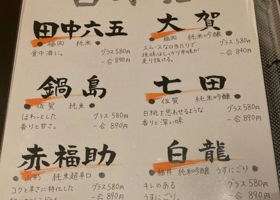 田中六五
福岡 純米
食中酒に。
グラス 580円
一合 890円
大賀
福岡 純米吟醸
グラス 580円
一合 890円
鍋島
佐賀 純米
ほわっとした
香りと甘さ。
グラス 580円
一合 890円
七田
佐賀 純米吟醸
香りと深い味
グラス 580円
一合 890円
赤福助
純米 超辛口
コクと辛さに特化した
グラス 580円
一合 890円
白龍
純米吟醸 うすにごり
キレのある
うすにごり。
グラス 580円
一合 890円